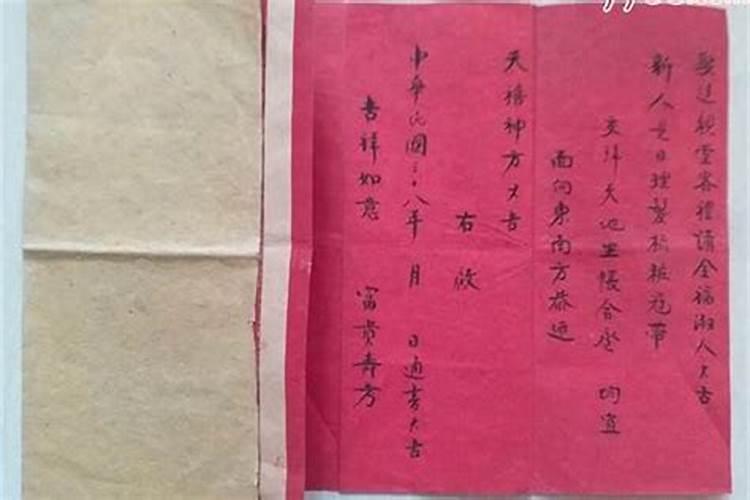 娶送親堂客禮請全福淑人大吉
新人是日理髮梳粧冠帶
交拜天地坐帳合卺 均宜
面向東南方恭迎
天禧神方大吉
右啟
中華民國三十八年 月 日適吉大吉
吉祥如意 富貴壽考